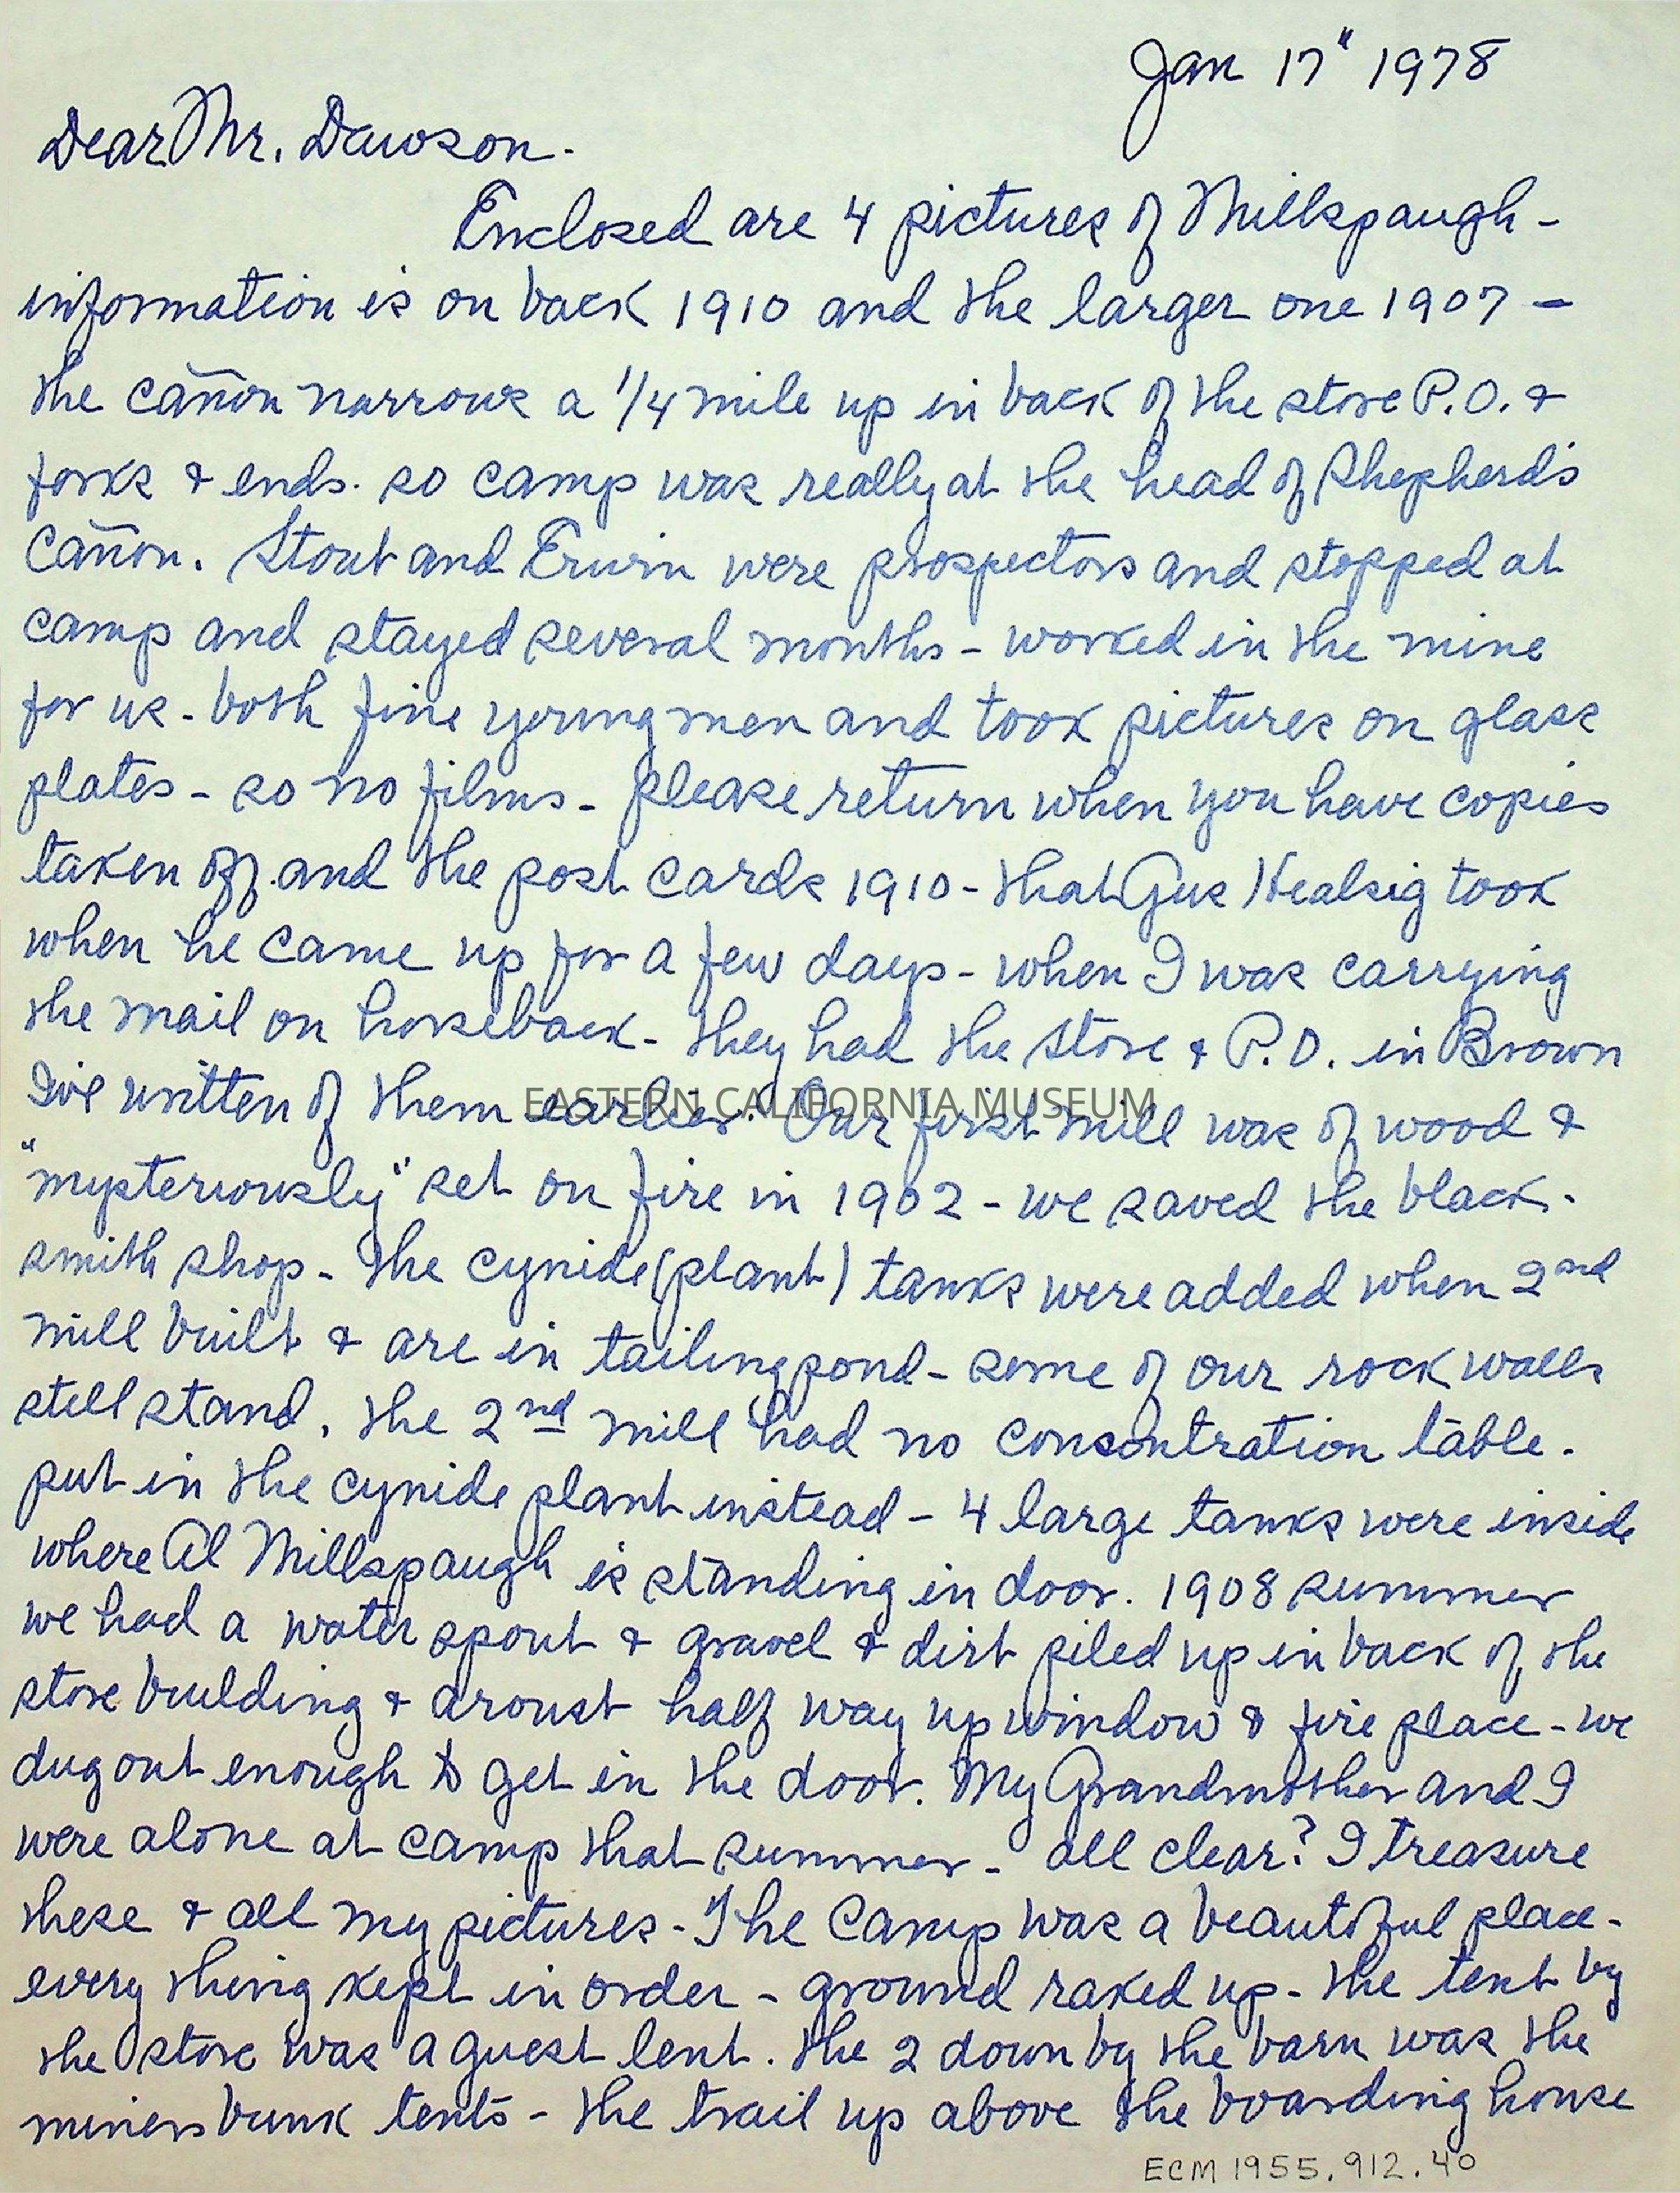 Jan 17" 1978
Dear Mr. Dawson.
Enclosed are 4 pictures of Millspaugh -
information is on back 1910 and the larger one 1907 -
the cañon narrows a 1/4 mile up in back of the store P.O. &
forks & ends. so camp was really at the head of Shepherd's
Cañon. Stout and Erwin were prospectors and stopped at
camp and stayed several months - worked in the mine
for us - both fine young men and took pictures on glass
plates - so no films - please return when you have copies
taken off. and the post cards 1910 - that Gus took
when he came up for a few days - when I was carrying
the mail on horseback - they had the store & P.O. in Brown
I've written of them earlier. Our first mill was of wood &
EASTERN CALIFORNIA MUSEUM
"mysteriously" set on fire in 1902 - we saved the black-
smith shop - the cynide (plant) tanks were added when 2nd
mill built & are in tailing pond - some of our rock walls
still stand. the 2nd mill had no consentration table -
put in the cynide plant instead - 4 large tanks were inside
where Al Millspaugh is standing in door. 1908 summer
we had a water spout & gravel & dirt piled up in back of the
store building & half way up window & fire place - we
dug out enough to get in the door. My Grandmother and I
were alone at camp that summer - all clear? I treasure
these & all my pictures - The Camp was a beautiful place -
every thing kept in order - ground raked up - the tent by
the store was a guest tent. the 2 down by the barn was the
miners bunk tents - the trail up above the boarding house
ECM 1955.912.40